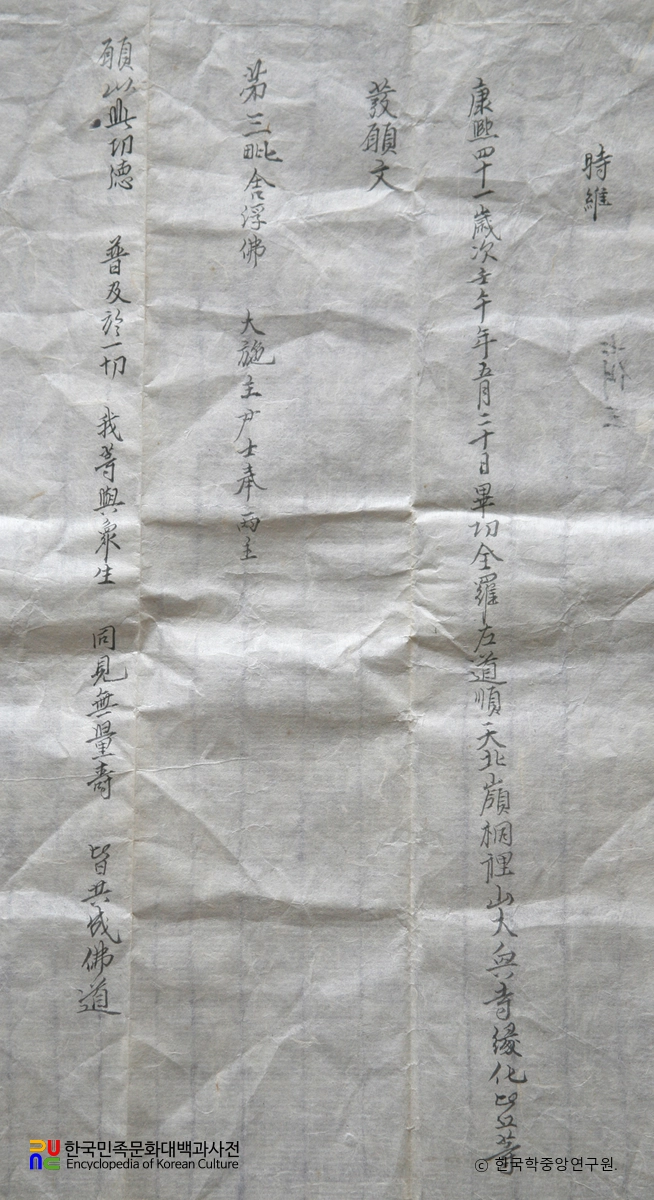 時維
康熙四十一歲次壬午年五月二十日畢切全羅左道順天北嶺桐裡山大興寺緣化比丘等
發願文
第三毗舍浮佛 大施主尹士奉両主
願以此切德 普及於一切 我等與衆生 同見無量壽 皆共成佛道
한국민족문화대백과사전
Encyclopedia of Korean Culture
© 한국학중앙연구원.